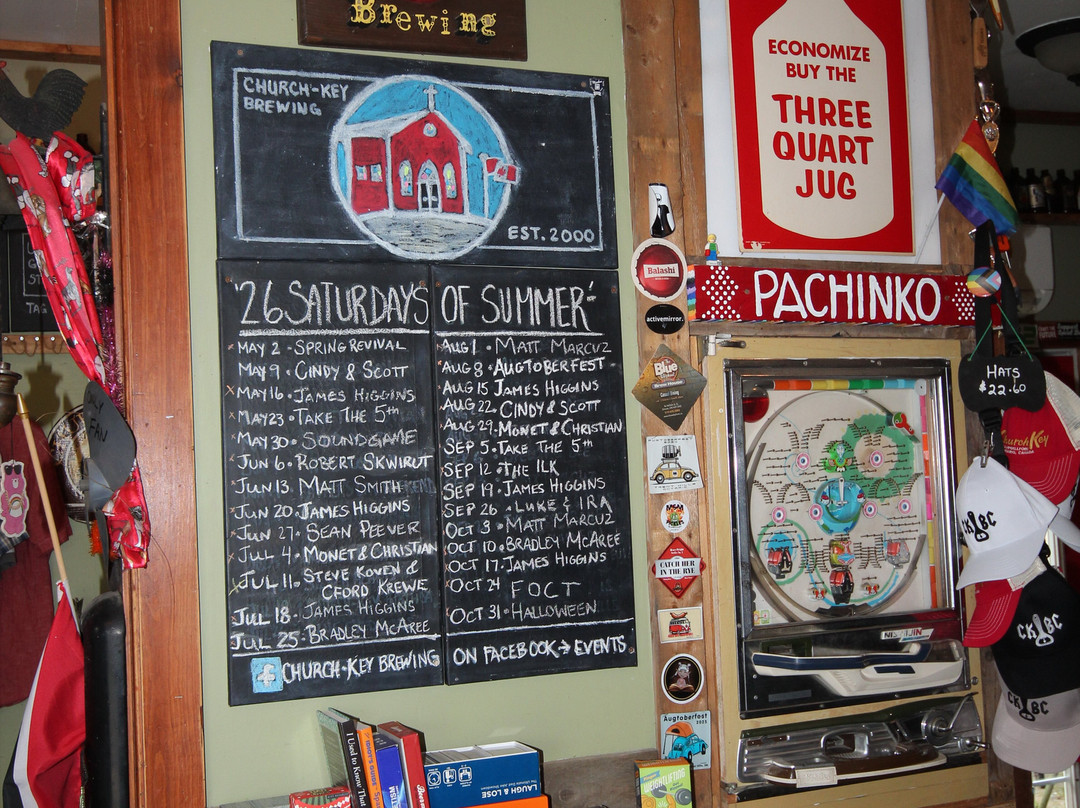 Brewing
CHURCH-KEY
BREWING
EST. 2000
'26 SATURDAYS OF SUMMER'
MAY 2 • SPRING REVIVAL
MAY 9 • CINDY & SCOTT
MAY 16 • JAMES HIGGINS
MAY 23 • TAKE THE 5th
MAY 30 • SOUNDGAME
JUN 6 • ROBERT SKWIRUT
JUN 13 MATT SMITH
JUN 20 • JAMES HIGGINS
JUN 27 • SEAN PEEVER
JUL 4 • MONET & CHRISTIAN
JUL 11 • STEVE KOVEN &
CFORD KREWE
JUL 18 • JAMES HIGGINS
JUL 25 • BRADLEY McAREE
CHURCH-KEY BREWING
AUG 1 • MATT MARCUZ
AUG 8 • AUGTOBERFEST
AUG 15 JAMES HIGGINS
AUG 22 • CINDY & SCOTT
AUG 29 • MONET & CHRISTIAN
SEP 5 • TAKE THE 5th
SEP 12 • THE ILK
SEP 19 • JAMES HIGGINS
SEP 26 • LUKE & IRA
OCT 3 • MATT MARCUZ
OCT 10 • BRADLEY McAREE
OCT 17 • JAMES HIGGINS
OCT 24 FOCT
OCT 31 • HALLOWEEN
ON FACEBOOK → EVENTS
ECONOMIZE
BUY THE
THREE
QUART
JUG
PACHINKO
Balashi
activemirror.
Blue
CATCH HER
IN THE RYE
Augtoberfest
2025
HATS
$22.60
ChurchKey
CK BC
CK BC
CK BC
FAN
TAG
I Used to Know That
LAUGH & LOSE
WEIGHTLIFTING